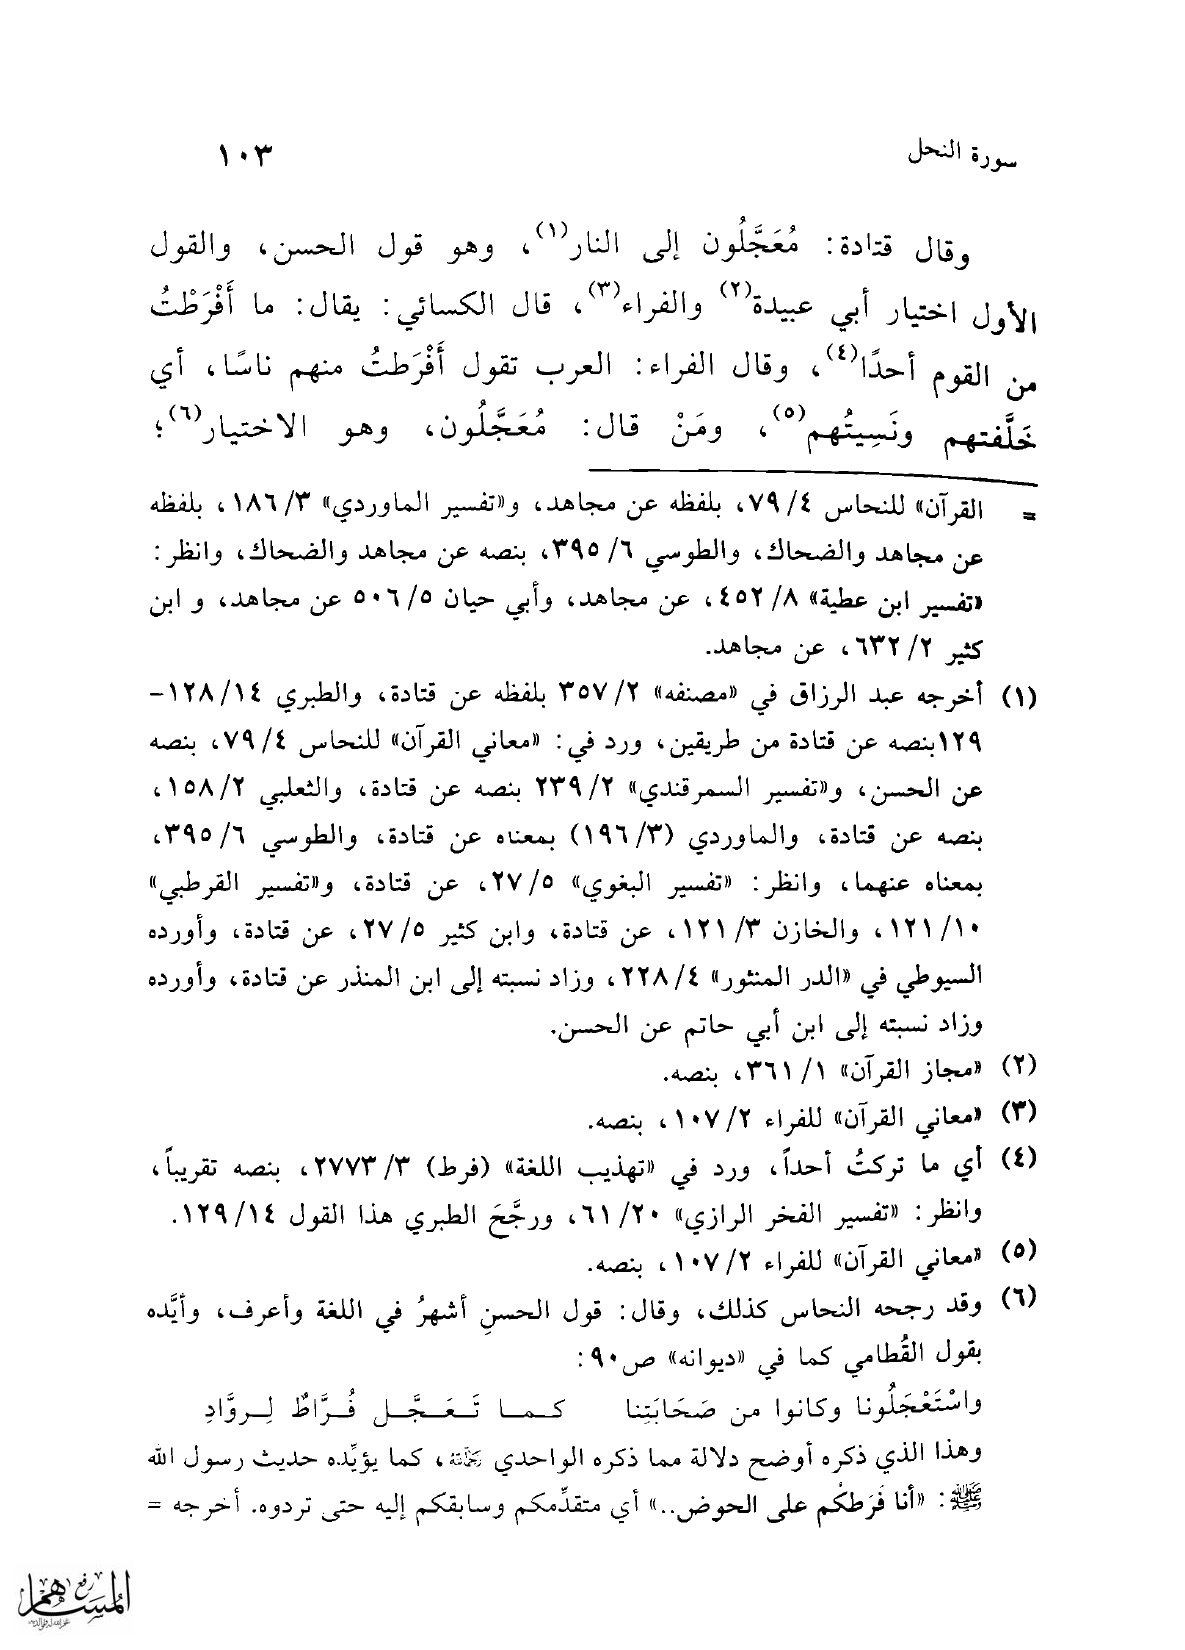 سورة النحل
١٠٣
وقال قتادة: مُعَجَّلُون إلى النار(١)، وهو قول الحسن، والقول
الأول اختيار أبي عبيدة(٢) والفراء(٣)، قال الكسائي: يقال: ما أَفْرَطْتُ
من القوم أحدًا(٤)، وقال الفراء: العرب تقول أَفْرَطتُ منهم ناسًا، أي
خَلَّفتهم ونَسِيتُهم(٥)، ومَنْ قال: مُعَجَّلُون، وهو الاختيار(٦)؛
= القرآن» للنحاس ٤/ ٧٩، بلفظه عن مجاهد، و«تفسير الماوردي» ٣/ ١٨٦، بلفظه
عن مجاهد والضحاك، والطوسي ٦/ ٣٩٥، بنصه عن مجاهد والضحاك، وانظر:
«تفسير ابن عطية» ٨/ ٤٥٢، عن مجاهد، وأبي حيان ٥/ ٥٠٦ عن مجاهد، و ابن
كثير ٢/ ٦٣٢، عن مجاهد.
(١) أخرجه عبد الرزاق في «مصنفه» ٢/ ٣٥٧ بلفظه عن قتادة، والطبري ١٤/ ١٢٨-
١٢٩بنصه عن قتادة من طريقين، ورد في: «معاني القرآن» للنحاس ٤/ ٧٩، بنصه
عن الحسن، و«تفسير السمرقندي» ٢/ ٢٣٩ بنصه عن قتادة، والثعلبي ٢/ ١٥٨،
بنصه عن قتادة، والماوردي (٣/ ١٩٦) بمعناه عن قتادة، والطوسي ٦/ ٣٩٥،
بمعناه عنهما، وانظر: «تفسير البغوي» ٥/ ٢٧، عن قتادة، و«تفسير القرطبي»
١٠/ ١٢١، والخازن ٣/ ١٢١، عن قتادة، وابن كثير ٥/ ٢٧، عن قتادة، وأورده
السيوطي في «الدر المنثور» ٤/ ٢٢٨، وزاد نسبته إلى ابن المنذر عن قتادة، وأورده
وزاد نسبته إلى ابن أبي حاتم عن الحسن.
(٢) «مجاز القرآن» ١/ ٣٦١، بنصه.
(٣) «معاني القرآن» للفراء ٢/ ١٠٧، بنصه.
(٤) أي ما تركتُ أحداً، ورد في «تهذيب اللغة» (فرط) ٣/ ٢٧٧٣، بنصه تقريباً،
وانظر: «تفسير الفخر الرازي» ٢٠/ ٦١، ورجَّحَ الطبري هذا القول ١٤/ ١٢٩.
(٥) «معاني القرآن» للفراء ٢/ ١٠٧، بنصه.
(٦) وقد رجحه النحاس كذلك، وقال: قول الحسنِ أشهرُ في اللغة وأعرف، وأيَّده
بقول القُطامي كما في «ديوانه» ص٩٠:
واسْتَعْجَلُونا وكانوا من صَحَابَتِنا كـمـا تَـعَـجَّـل فُـرَّاطٌ لِـروَّادِ
وهذا الذي ذكره أوضح دلالة مما ذكره الواحدي رحمه الله، كما يؤيِّده حديث رسول الله
ﷺ: «أنا فَرَطكُم على الحوض..» أي متقدِّمكم وسابقكم إليه حتى تردوه. أخرجه =
رفع
المساهم